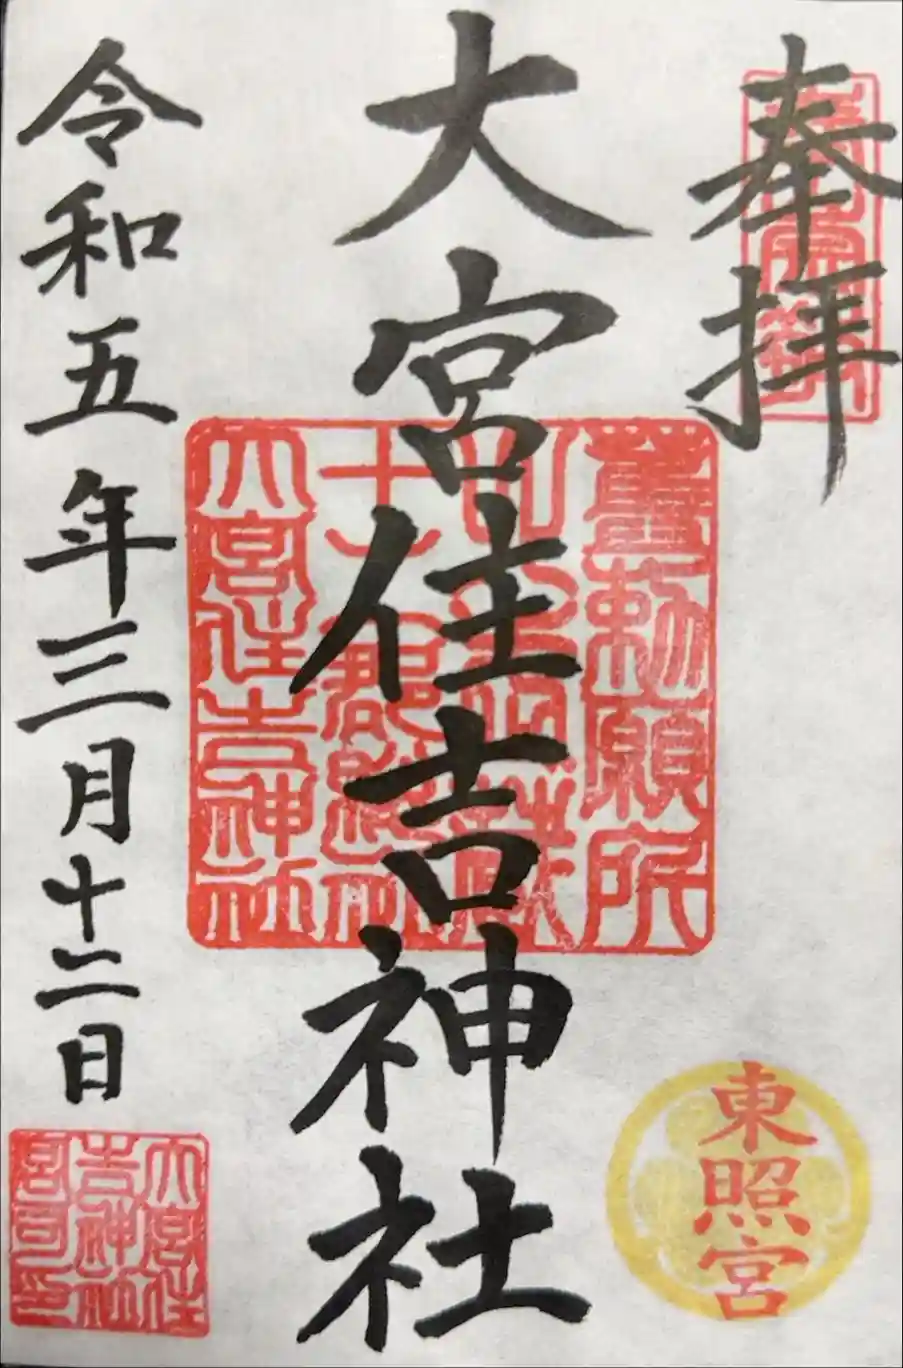 奉拝
大宮住吉神社
令和五年三月十二日
勅願所
大宮住吉神社
東照宮
大宮住
吉神社
宮司印